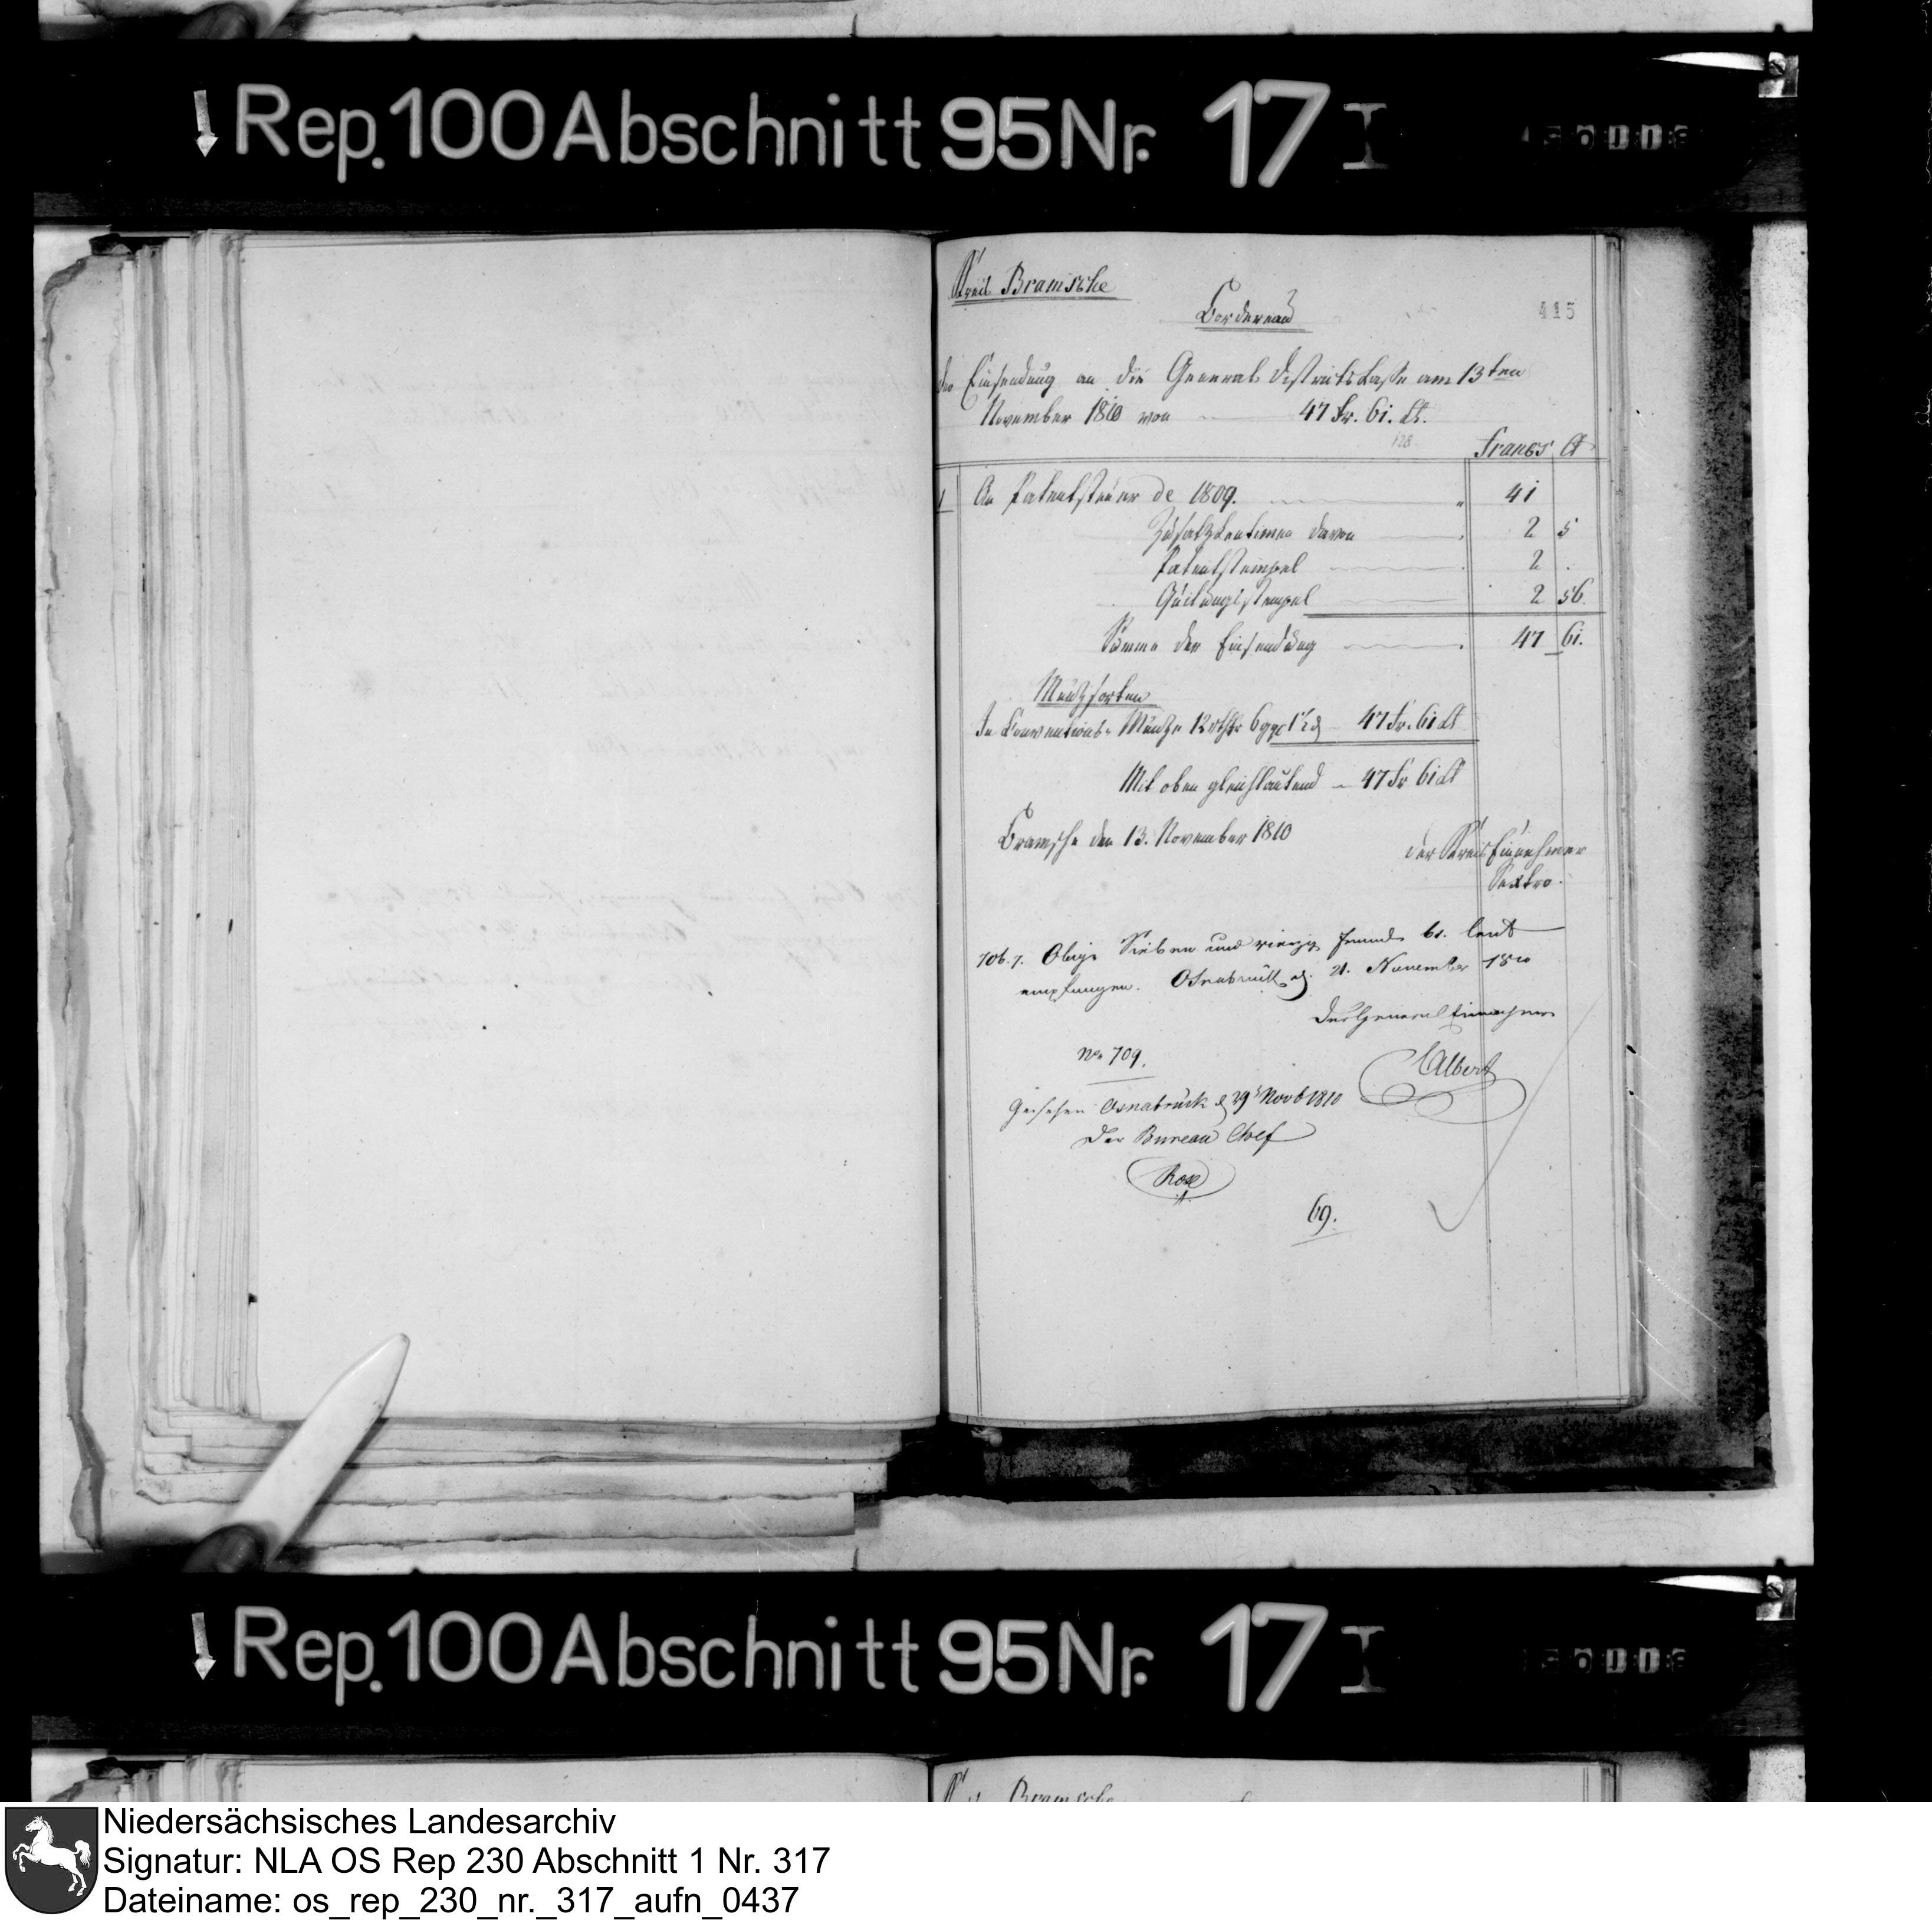 Rep. 100 Abschnitt 95 Nr. 17 I
Kreis Bramsche
Bordereau
415
der Einsendung an die General Districts Casse am 13ten
November 1810 von 47 Fr. 61. Ct.
128
Francs Ct
1 An Patentsteuer de 1809. 41
Zusatz Centimen davon 2 5
Patentstempel 2 .
Quitungsstempel 2 56.
Summa der Einsendung 47 61.
Müntzsorten
In Conventions-Müntze 12 rthlr 6 ggr 1½ d 47 Fr. 61 Ct
Mit oben gleichlautend 47 Fr 61 Ct
Bramsche den 13. November 1810
der Kreis Einnehmer
Sextro.
706. 7. Obige Sieben und vierzig Francs 61. Cent
empfangen. Osnabrück d. 21. November 1810
Der General Einnehmer
No 709.
Albert
Gesehen Osnabrück d 29 Novb 1810
Der Bureau Chef
69.
Rep. 100 Abschnitt 95 Nr. 17 I
Bramsche
Niedersächsisches Landesarchiv
Signatur: NLA OS Rep 230 Abschnitt 1 Nr. 317
Dateiname: os_rep_230_nr._317_aufn_0437